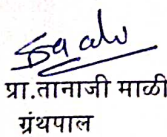 प्रा.तानाजी माळी
ग्रंथपाल